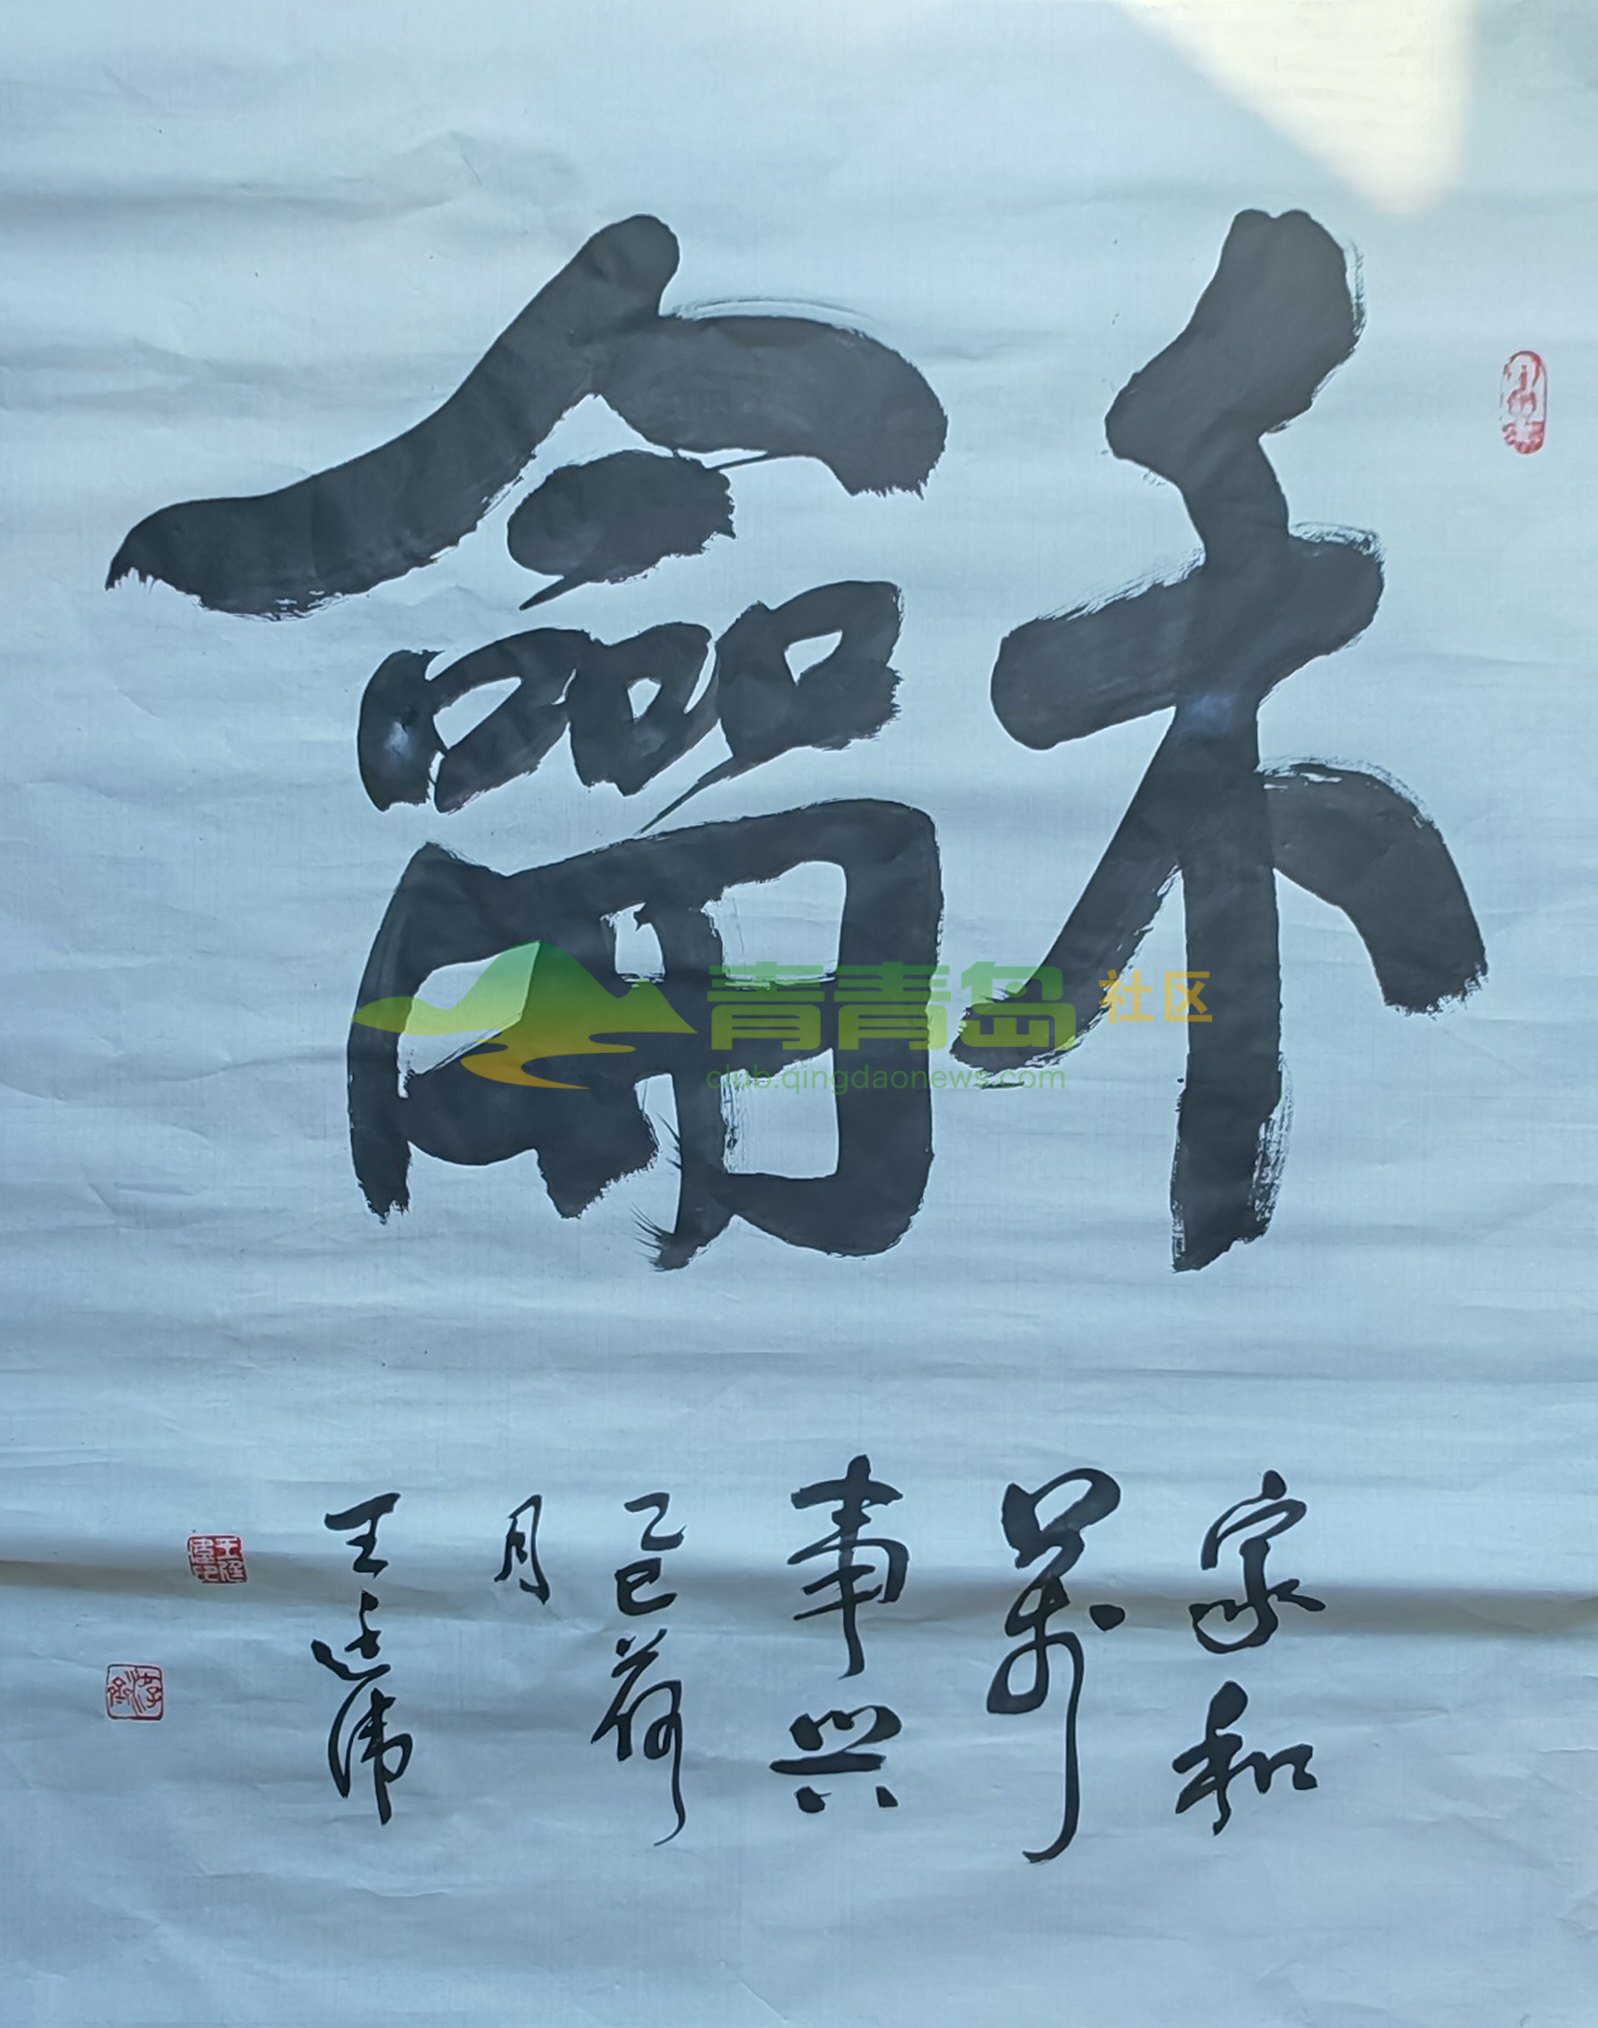 龢
家和
萬
事兴
乙巳荷
月
王
青青岛社区
club.qingdaonews.com